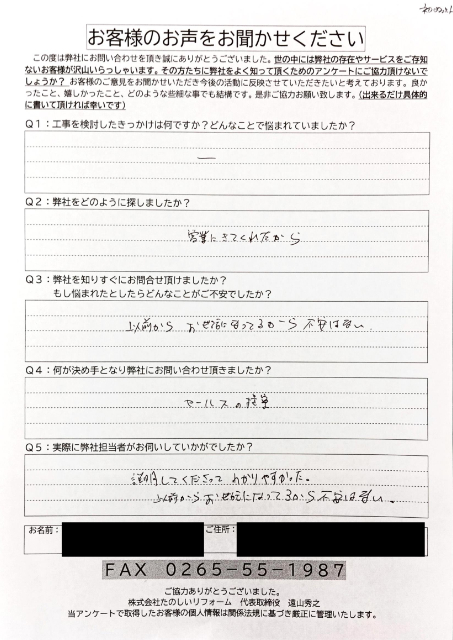 お客様のお声をお聞かせください
この度は弊社にお問い合せを頂き誠にありがとうございました。世の中には弊社の存在やサービスをご存知
ないお客様が沢山いらっしゃいます。その方たちに弊社をよく知って頂くためのアンケートにご協力頂けないで
しょうか?お客様のご意見をお聞かせいただき今後の活動に反映させていただきたいと考えております。良か
ったこと、嬉しかったこと、どのような些細な事でも結構です。是非ご協力お願い致します。(出来るだけ具体的
に書いて頂ければ幸いです)
Q1:工事を検討したきっかけは何ですか?どんなことで悩まれていましたか?
ー
Q2:弊社をどのように探しましたか?
営業にきてくれたから
Q3:弊社を知りすぐにお問合せ頂けましたか?
もし悩まれたとしたらどんなことがご不安でしたか?
以前から お世話になってるから 不安はない
Q4:何が決め手となり弊社にお問い合わせ頂きましたか?
セールスの
Q5:実際に弊社担当者がお伺いしていかがでしたか?
説明してくださって わかりやすかった。
以前から お世話になってるから 不安はない。
お名前:
ご住所:
FAX 0265-55-1987
ご協力ありがとうございました。
株式会社たのしいリフォーム 代表取締役 遠山秀之
当アンケートで取得したお客様の個人情報は関係法規に基づき厳正に管理いたします。